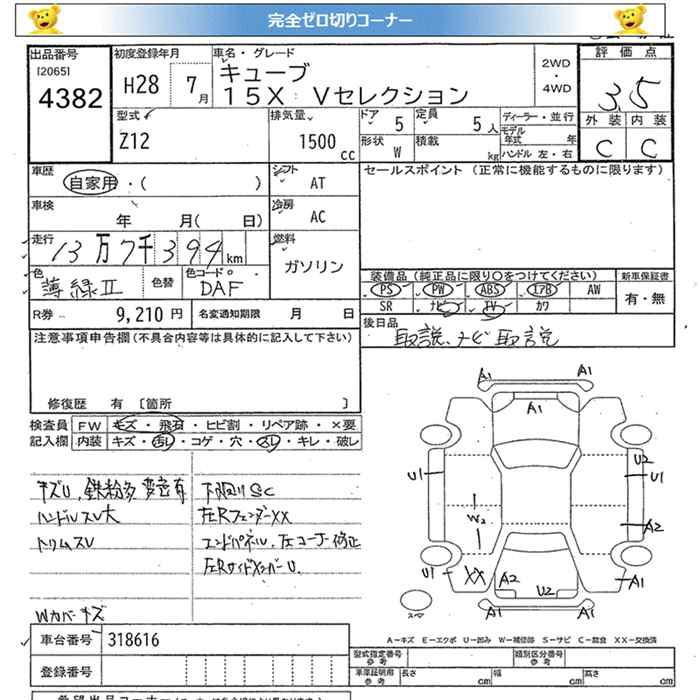 完全ゼロ切りコーナー
出品番号
[2065]
4382
初度登録年月
H28 7月
車名・グレード
キューブ
15X Vセレクション
2WD
・
4WD
評価点
3.5
外装 内装
C C
型式
Z12
排気量
1500 cc
ドア 5
定員 5人
形状 W
積載 kg
ディーラー・並行
モデル年式 年
ハンドル 左・右
車歴
自家用・( )
シフト
AT
セールスポイント (正常に機能するものに限ります)
車検
年 月( 日)
冷房
AC
走行
13万7千394km
燃料
ガソリン
色
薄緑II
色替
色コード。
DAF
装備品 (純正品に限り○をつけてください)
PS PW ABS エアB AW
SR ナビ TV カワ
新車保証書
有・無
R券 9,210 円
名変通知期限 月 日
後日品
取説、ナビ取説
注意事項申告欄(不具合内容等は具体的に記入して下さい)
修復歴 有 [箇所 ]
検査員記入欄
FW キズ・飛石・ヒビ割・リペア跡・×要
内装 キズ・汚れ・コゲ・穴・スレ・キレ・破レ
キズU、鉄粉多 変色有
ハンドルスレ大
トリムスレ
下回りSC
左RフェンダーXX
エンドパネル、左コーナー修正
左RサイドメンバーU
Wカバーキズ
A1 A1
A1
U1 U2
U1
W2 A2
U1 XX A2 U2 A1
A1 A1
A-キズ E-エクボ U-凹み W-補修跡 S-サビ C-腐食 XX-交換済
車台番号 318616
登録番号
型式指定番号 参考
類別区分番号 参考
車庫証明用 参考
長さ cm
幅 cm
高さ cm